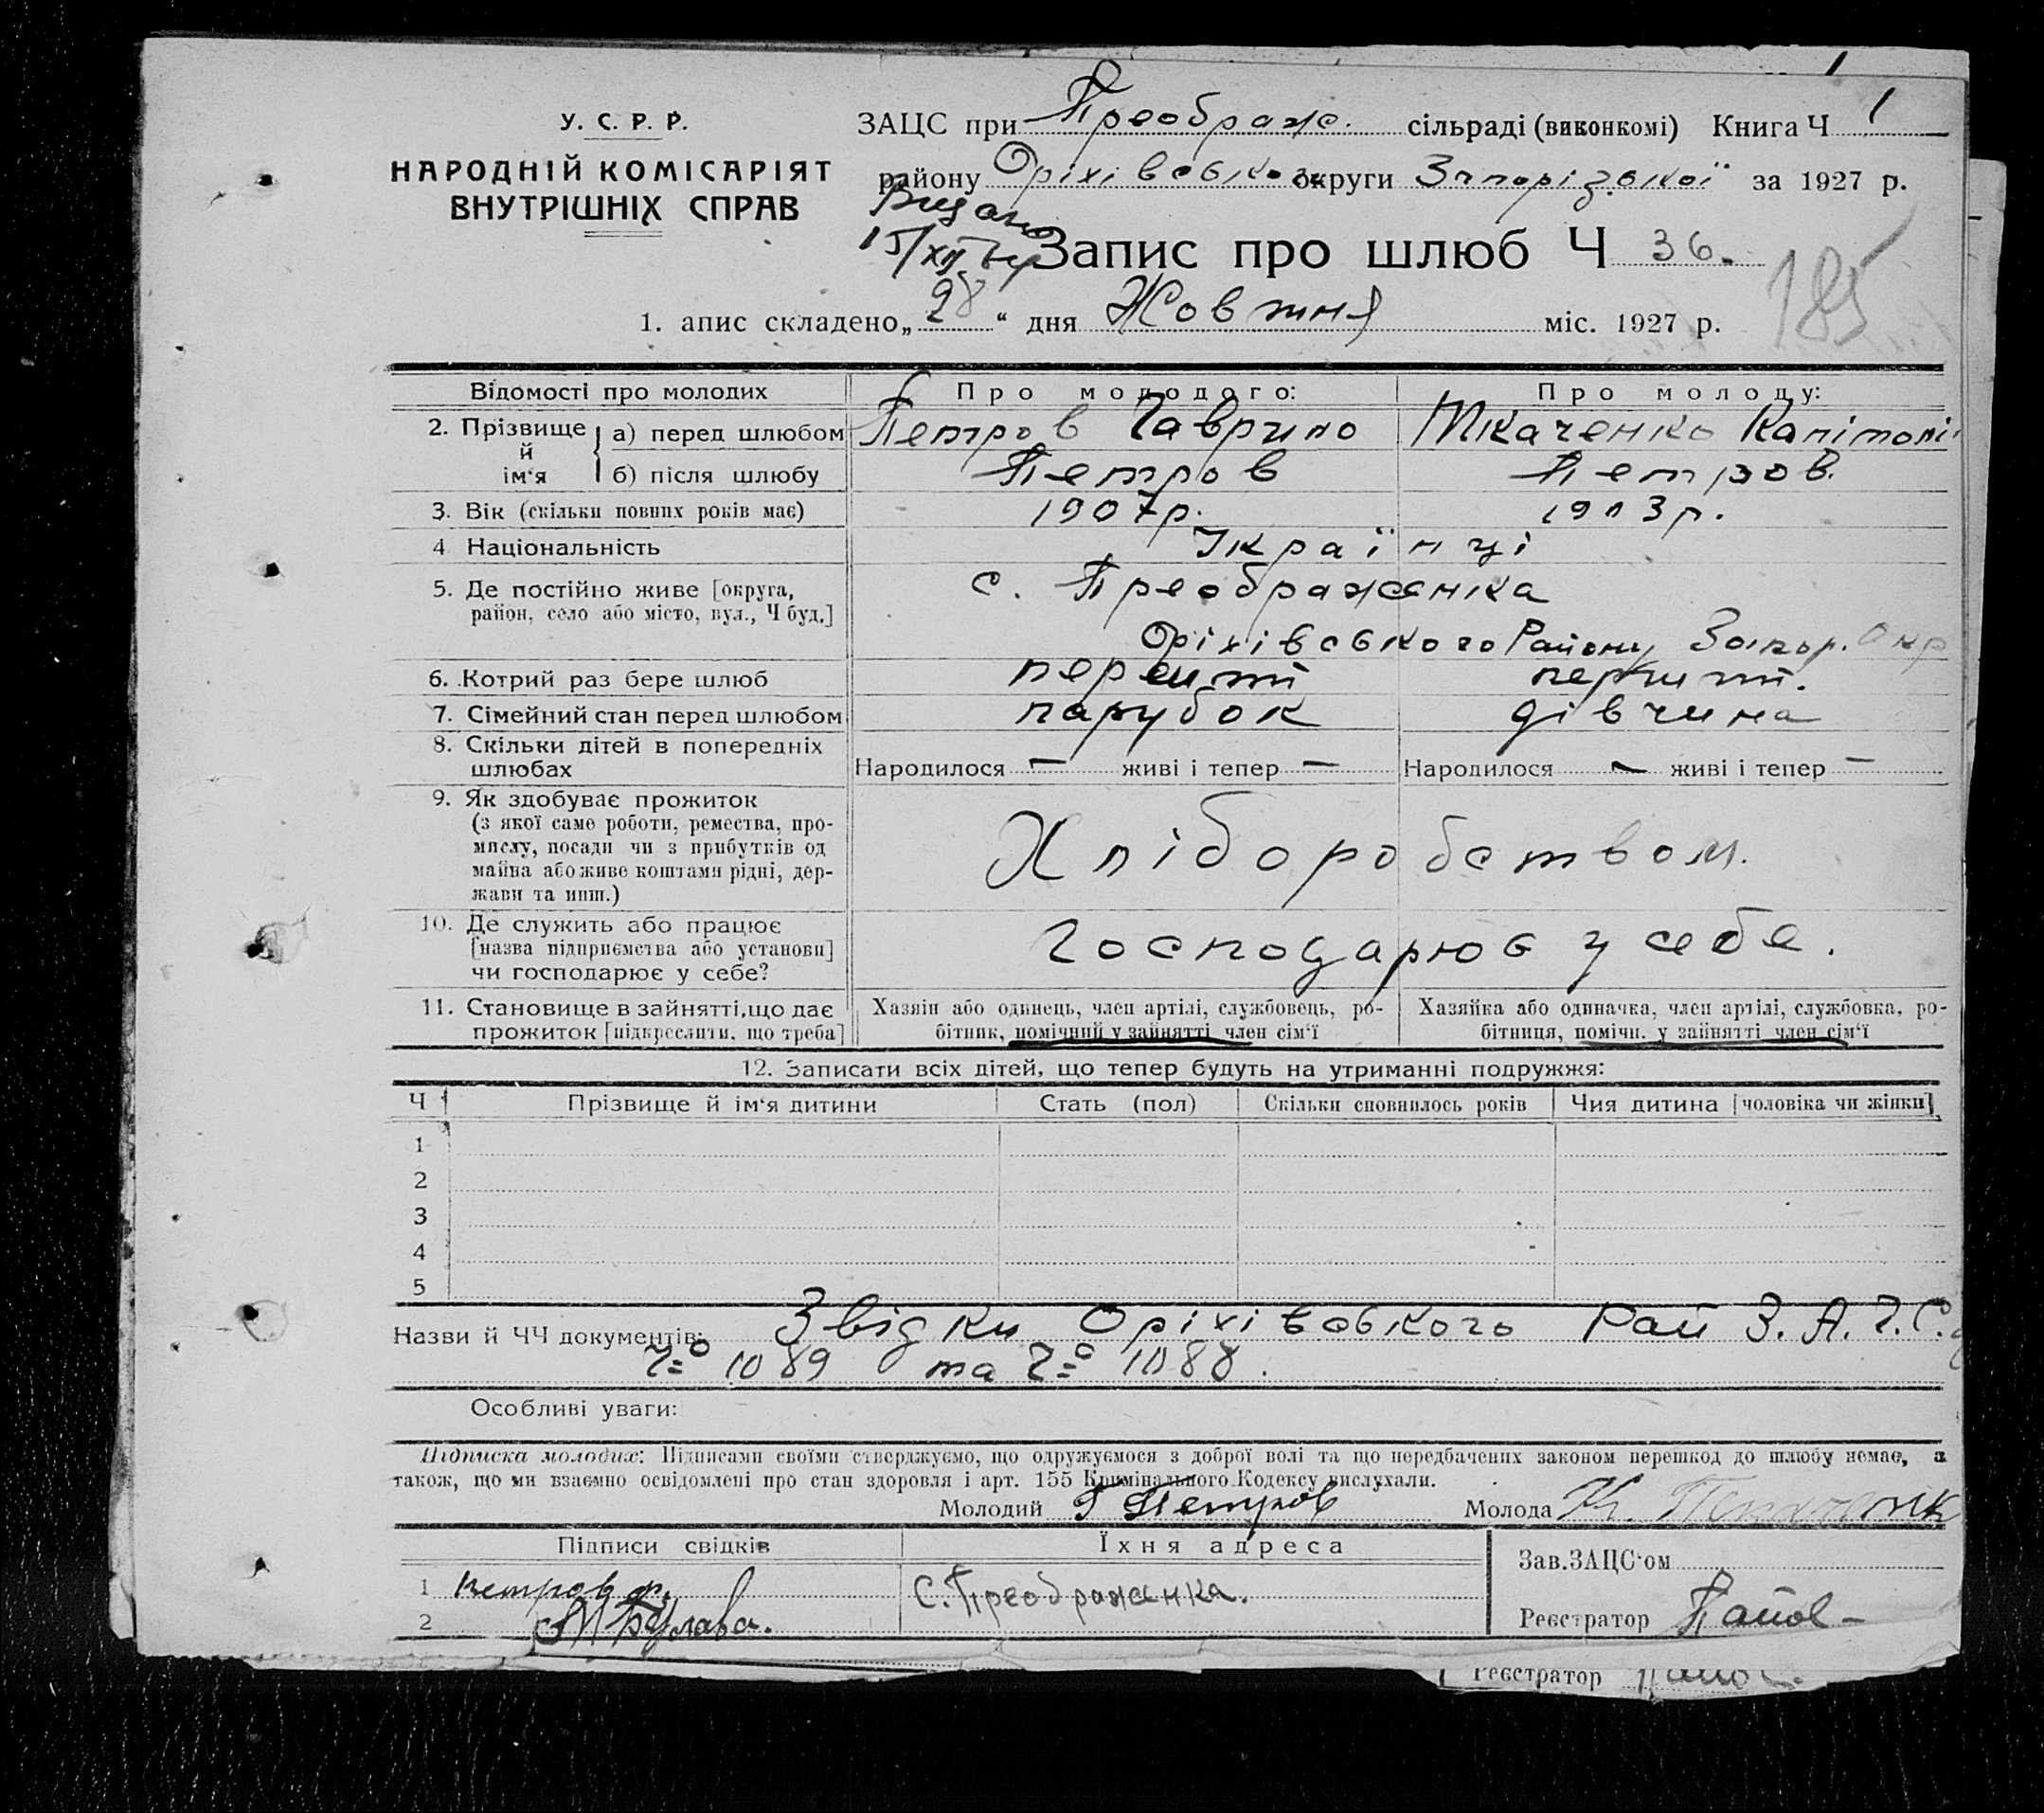 1
У. С. Р. Р.
НАРОДНІЙ КОМІСАРІЯТ
ВНУТРІШНІХ СПРАВ
ЗАЦС при Преображ. сільраді (виконкомі) Книга Ч 1
району Оріхівсько округи Запорізької за 1927 р.
Видано
15/XII
Запис про шлюб Ч 36.
185
1. апис складено „28“ дня Жовтня міс. 1927 р.
Відомості про молодих
Про молодого:
Про молоду:
2. Прізвище й ім‘я
а) перед шлюбом
Петров Гаврило
Ткаченко Капітолі
б) після шлюбу
Петров
Петров.
3. Вік (скільки повних років має)
1907р.
1903р.
4 Національність
Українці
5. Де постійно живе [округа,
район, село або місто, вул., Ч буд.]
с. Преображенка
Оріхівського Району Запор. Окр
6. Котрий раз бере шлюб
перший
перший.
7. Сімейний стан перед шлюбом
парубок
дівчина
8. Скільки дітей в попередніх
шлюбах
Народилося — живі і тепер —
Народилося — живі і тепер —
9. Як здобуває прожиток
(з якої саме роботи, ремества, про-
мислу, посади чи з прибутків од
майна або живе коштами рідні, дер-
жави та инш.)
Хліборобством.
10. Де служить або працює
[назва підприємства або установи]
чи господарює у себе?
Господарює у себе.
11. Становище в зайнятті, що дає
прожиток [підкреслити, що треба]
Хазяін або одинець, член артілі, службовець, ро-
бітник, помічний у зайнятті член сім‘ї
Хазяйка або одиначка, член артілі, службовка, ро-
бітниця, помічн. у зайнятті член сім‘ї
12. Записати всіх дітей, що тепер будуть на утриманні подружжя:
Ч
Прізвище й ім‘я дитини
Стать (пол)
Скільки сповнилось років
Чия дитина [чоловіка чи жінки]
1
2
3
4
5
Назви й ЧЧ документів: Звідки Оріхівського Рай З. А. Г. С.
1089 та 1088.
Особливі уваги:
Підписка молодих: Підписами своїми стверджуємо, що одружуємося з доброї волі та що передбачених законом перешкод до шлюбу немає, а
також, що ми взаємно освідомлені про стан здоровля і арт. 155 Кримінального Кодексу вислухали.
Молодий Г Петров
Молода К.
Підписи свідків
Їхня адреса
1 Петров Ф.
С. Преображенка.
2 М Булава.
Зав. ЗАЦС‘ом
Реєстратор
Реєстратор